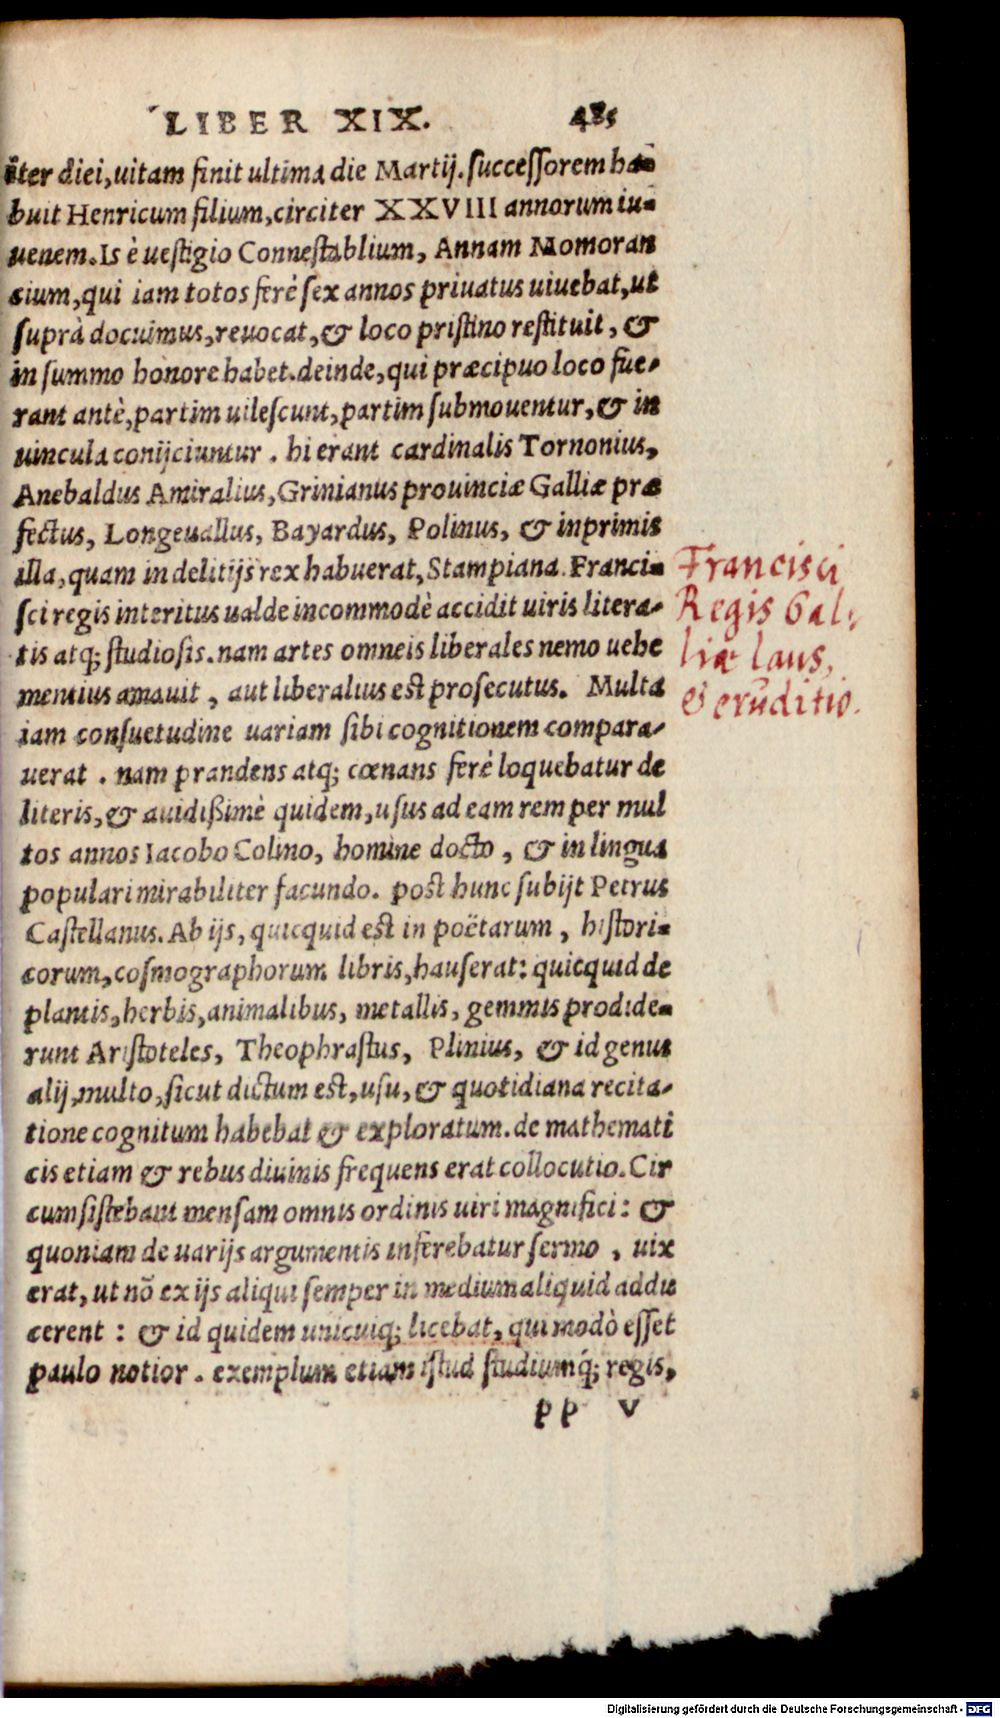 LIBER XIX. 485
iter diei, uitam finit ultima die Martij. successorem ha-
buit Henricum filium, circiter XXVIII annorum iu-
uenem. Is è uestigio Connestablium, Annam Momoran
cium, qui iam totos ferè sex annos priuatus uiuebat, ut
suprà docuimus, reuocat, & loco pristino restituit, &
in summo honore habet. deinde, qui præcipuo loco fue-
rant antè, partim uilescunt, partim submouentur, & in
uincula conijciuntur. hi erant cardinalis Tornonius,
Anebaldus Amiralius, Grinianus prouinciæ Galliæ præ
fectus, Longeuallus, Bayardus, Polinus, & inprimis
illa, quam in delitijs rex habuerat, Stampiana. Franci-
sci regis interitus ualde incommodè accidit uiris litera-
tis atq; studiosis. nam artes omneis liberales nemo uehe
mentius amauit, aut liberalius est prosecutus. Multa
iam consuetudine uariam sibi cognitionem compara-
uerat. nam prandens atq; cœnans ferè loquebatur de
literis, & auidißimè quidem, usus ad eam rem per mul
tos annos Iacobo Colino, homine docto, & in lingua
populari mirabiliter facundo. post hunc subijt Petrus
Castellanus. Ab ijs, quicquid est in poëtarum, histori-
corum, cosmographorum libris, hauserat: quicquid de
plantis, herbis, animalibus, metallis, gemmis prodide-
runt Aristoteles, Theophrastus, Plinius, & id genus
alij, multo, sicut dictum est, usu, & quotidiana recita-
tione cognitum habebat & exploratum. de mathemati
cis etiam & rebus diuinis frequens erat collocutio. Cir
cumsistebant mensam omnis ordinis uiri magnifici: &
quoniam de uarijs argumentis inferebatur sermo, uix
erat, ut nõ ex ijs aliqui semper in medium aliquid addu
cerent: & id quidem unicuiq; licebat, qui modò esset
paulo notior. exemplum etiam istud studiumq́; regis,
PP V
Francisci
Regis Gal-
liæ laus,
& eruditio.
Digitalisierung gefördert durch die Deutsche Forschungsgemeinschaft - DFG